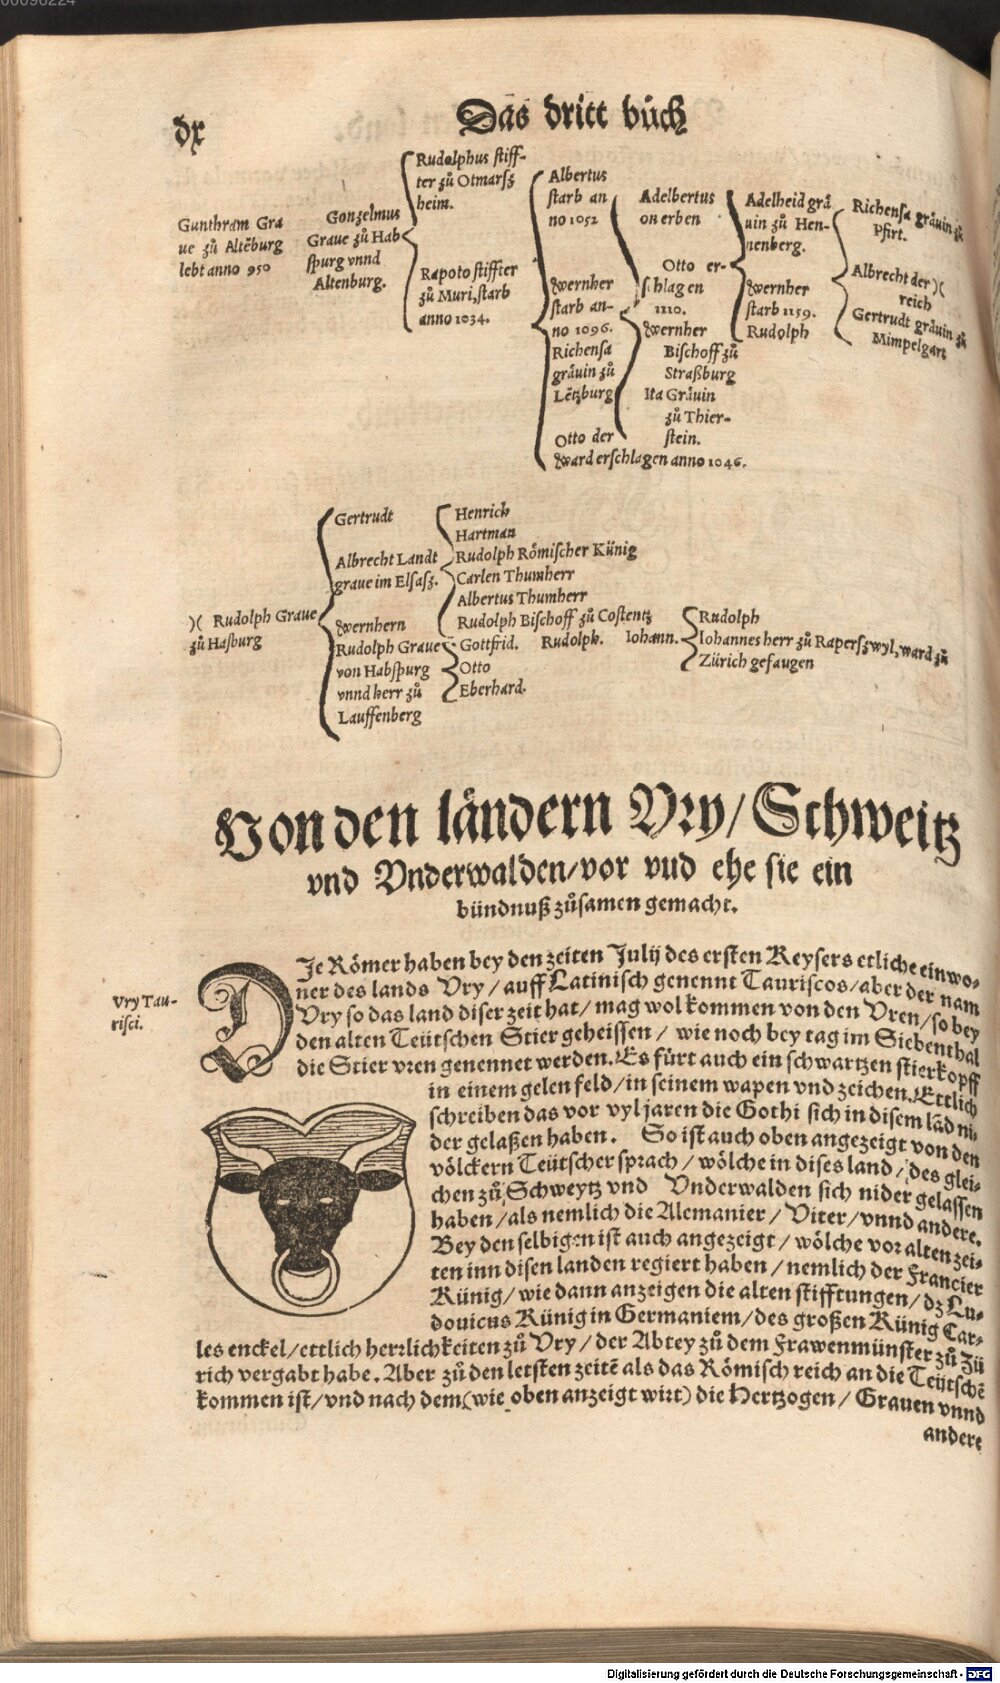 00096224
dx
Das dritt bůch
Gunthram Gra
ue zů Altēburg
lebt anno 950
Gonzelmus
Graue zů Hab
spurg vnnd
Altenburg.
Rudolphus stiff-
ter zů Otmarsz
heim.
Rapoto stiffter
zů Muri, starb
anno 1034.
Albertus
starb an
no 1052
Wernher
starb an-
no 1096.
Richensa
gräuin zů
Lētzburg
Otto der
Ward erschlagen anno 1046.
Adelbertus
on erben
Otto er-
schlagen
1110.
Wernher
Bischoff zů
Straßburg
Ita Gräuin
zů Thier-
stein.
Adelheid grå
uin zů Hen-
nenberg.
Wernher
starb 1159.
Rudolph
Richensa gräuin zů
Pfirt.
Albrecht der )(
reich
Gertrudt gräuin zů
Mimpelgart
)( Rudolph Graue
zů Hasburg
Gertrudt
Albrecht Landt
graue im Elsasz.
Wernhern
Rudolph Graue
von Habspurg
vnnd herr zů
Lauffenberg
Henrich
Hartman
Rudolph Römischer Künig
Carlen Thumherr
Albertus Thumherr
Rudolph Bischoff zů Costentz
Gottfrid. Rudolph. Iohann.
Otto
Eberhard.
Rudolph
Iohannes herr zů Raperszwyl, ward zů
Zürich gefaugen
Von den ländern Vry/ Schweitz
vnd Vnderwalden/ vor vud ehe sie ein
bündnuß zůsamen gemacht.
Vry Tau-
risci.
DIe Römer haben bey den zeiten Julij des ersten Keysers etliche einwo-
ner des lands Vry / auff Latinisch genennt Tauriscos / aber der nam
Vry so das land diser zeit hat / mag wol kommen von den Vren / so bey
den alten Teütschen Stier geheissen / wie noch bey tag im Siebenthal
die Stier vren genennet werden. Es fürt auch ein schwartzen stierkopff
in einem gelen feld / in seinem wapen vnd zeichen. Ettlich
schreiben das vor vyl jaren die Gothi sich in disem lād ni-
der gelaßen haben. So ist auch oben angezeigt von den
völckern Teütscher sprach / wölche in dises land / des glei-
chen zů Schweytz vnd Vnderwalden sich nider gelassen
haben / als nemlich die Alemanier / Viter / vnnd andere.
Bey den selbigen ist auch angezeigt / wölche vor alten zei-
ten inn disen landen regiert haben / nemlich der Francier
Künig / wie dann anzeigen die alten stifftungen / dz Lu-
douicus Künig in Germaniem / des großen Künig Car-
les enckel / ettlich herrlichkeiten zů Vry / der Abtey zů dem Frawenmünster zů Zü
rich vergabt habe. Aber zů den letsten zeitē als das Römisch reich an die Teütschē
kommen ist / vnd nach dem (wie oben anzeigt wirt) die Hertzogen / Grauen vnnd
andere
Digitalisierung gefördert durch die Deutsche Forschungsgemeinschaft - DFG